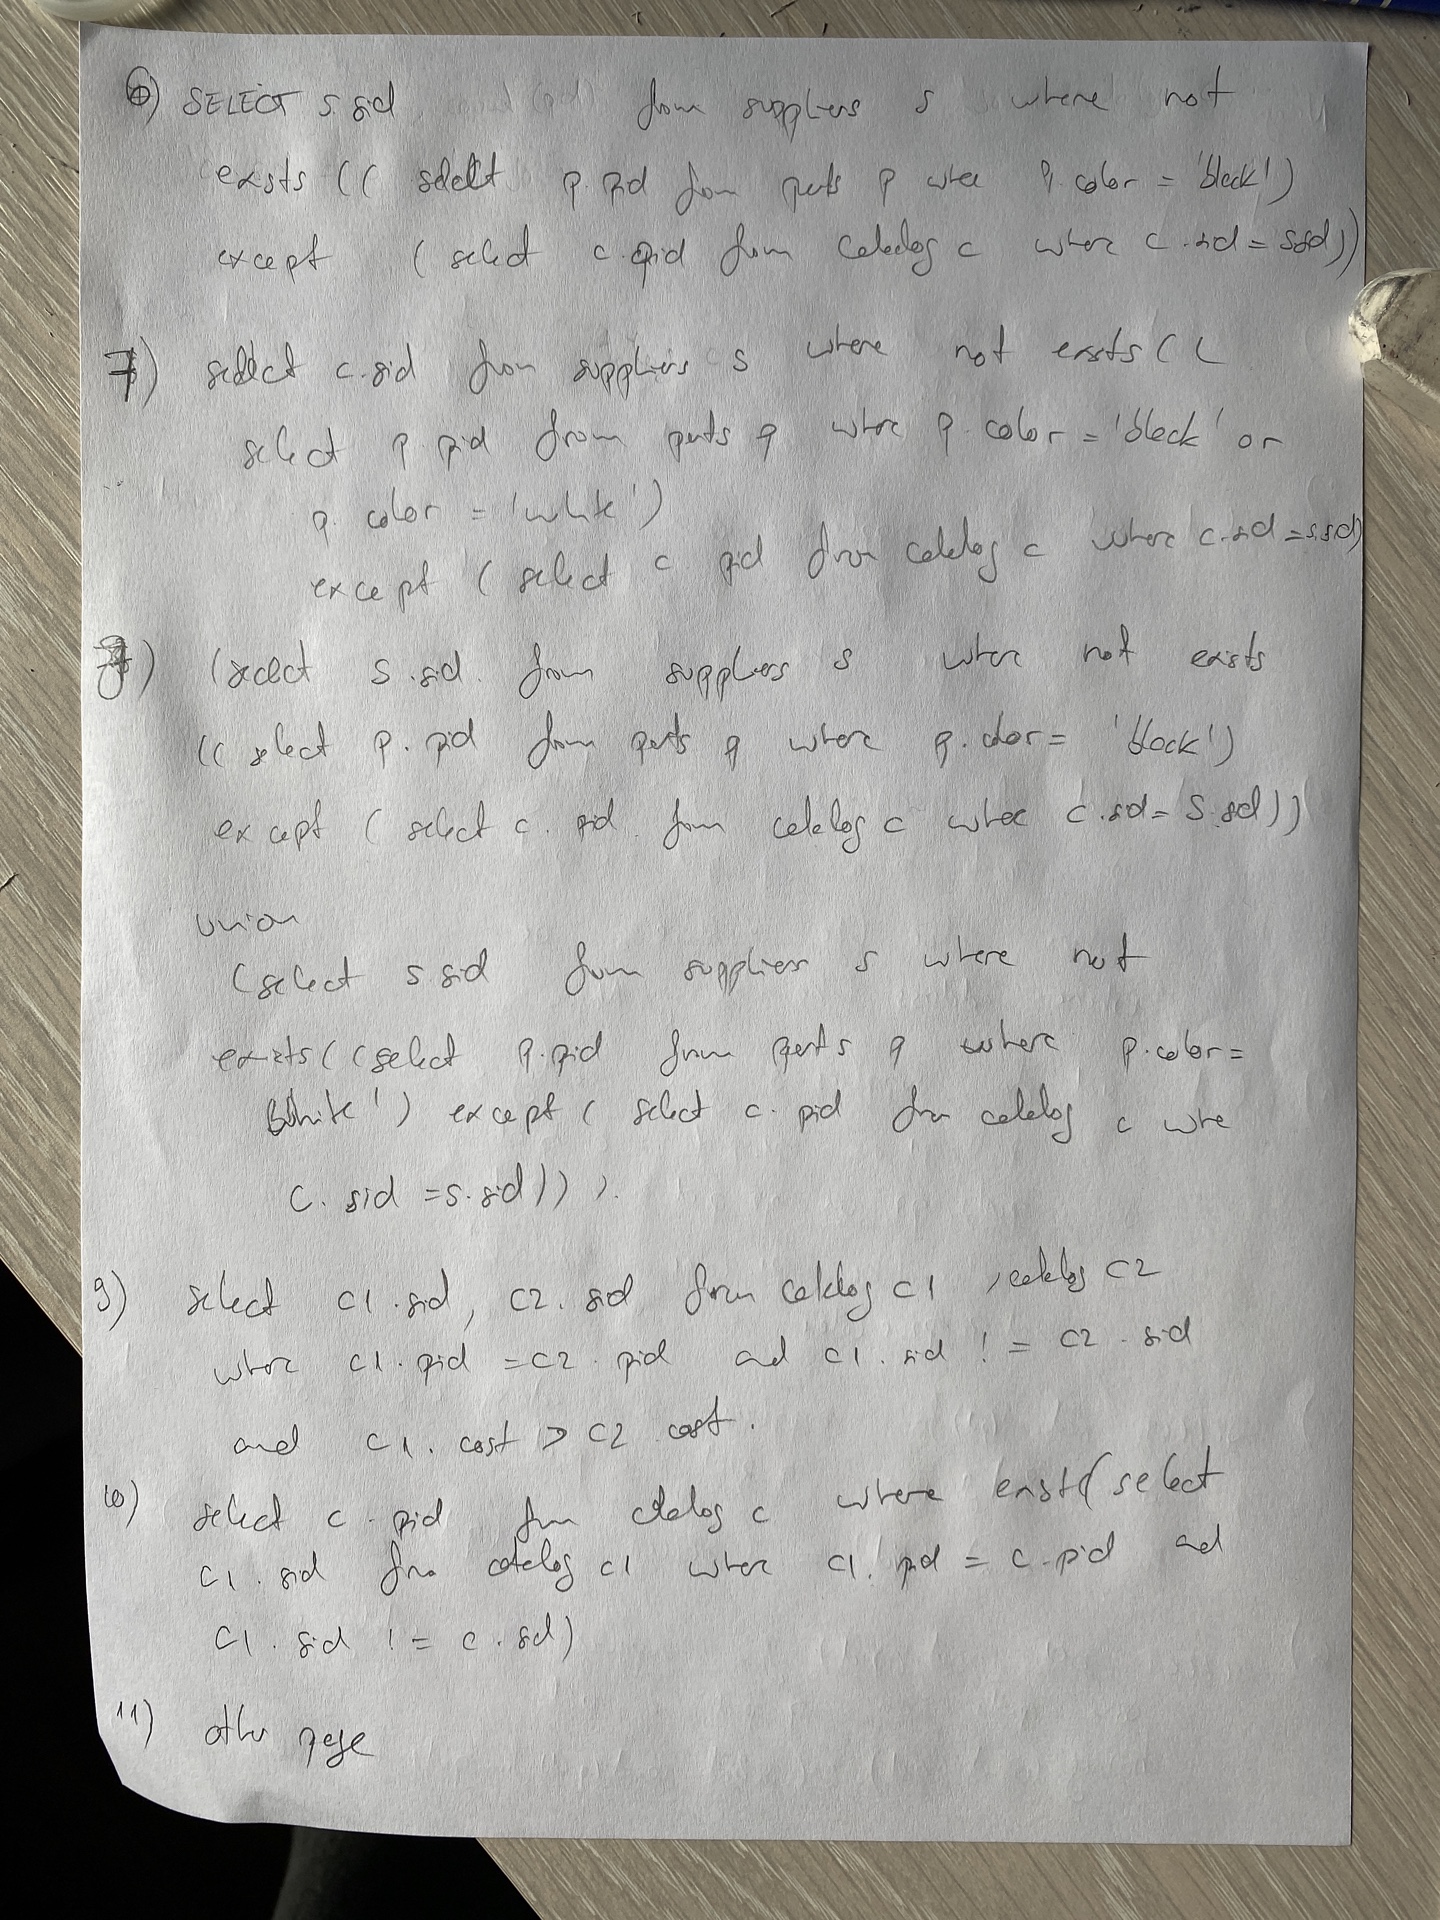 6) SELECT s.sid from suppliers s where not
exists (( select p.pid from parts p where p.color = 'black')
except ( select c.pid from catalog c where c.sid = s.sid))
7) select c.sid from suppliers s where not exists ( (
select p.pid from parts p where p.color = 'black' or
p.color = 'white')
except ( select c.pid from catalog c where c.sid = s.sid)
8) (select s.sid from suppliers s where not exists
(( select p.pid from parts p where p.color = 'black')
except ( select c.pid from catalog c where c.sid = s.sid))
union
(select s.sid from suppliers s where not
exists((select p.pid from parts p where p.color =
white') except ( select c.pid from catalog c where
c.sid = s.sid)) ).
9) select c1.sid, c2.sid from catalog c1 , catalog c2
where c1.pid = c2.pid and c1.sid != c2.sid
and c1.cost > c2.cost.
10) select c.pid from catalog c where exist (select
c1.sid from catalog c1 where c1.pid = c.pid and
c1.sid != c.sid)
11) other page